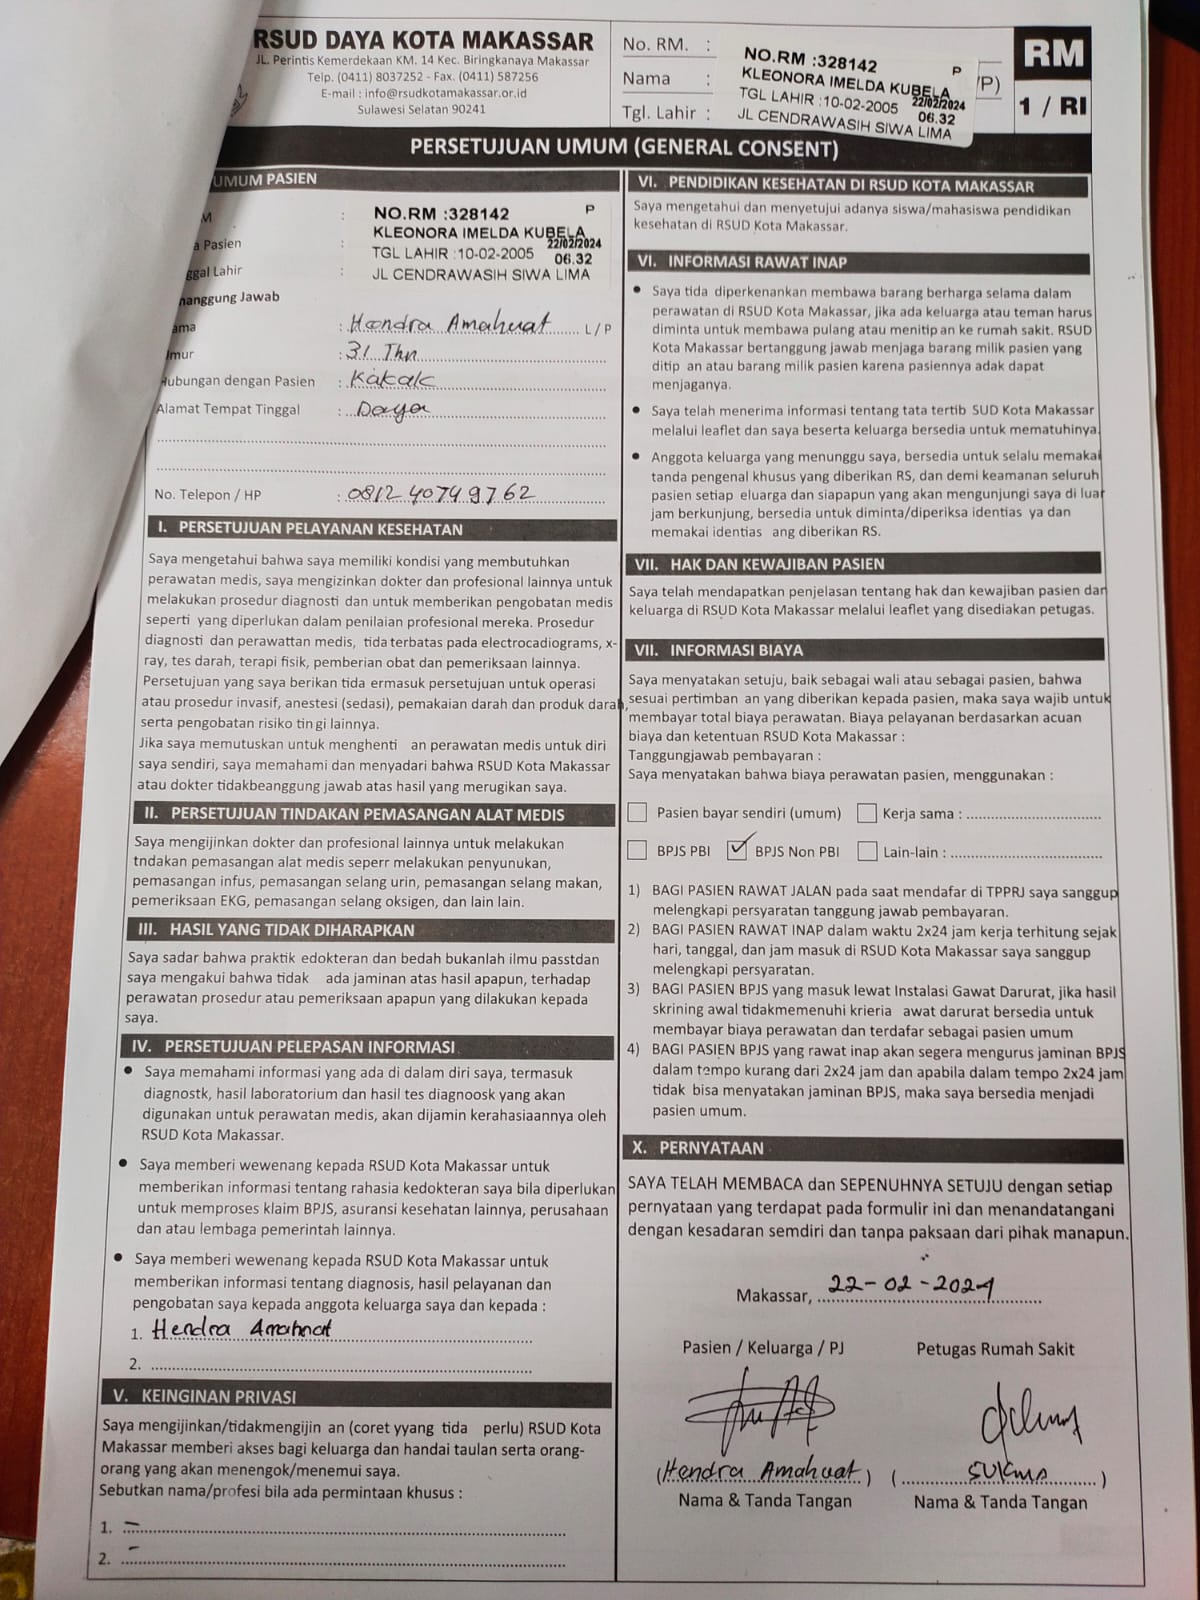 RSUD DAYA KOTA MAKASSAR
JL. Perintis Kemerdekaan KM. 14 Kec. Biringkanaya Makassar
Telp. (0411) 8037252 - Fax. (0411) 587256
E-mail : info@rsudkotamakassar.or.id
Sulawesi Selatan 90241
No. RM. :
Nama :
Tgl. Lahir :
NO.RM :328142 P
KLEONORA IMELDA KUBELA
TGL LAHIR :10-02-2005 22/02/2024
06.32
JL CENDRAWASIH SIWA LIMA
/P)
RM
1 / RI
PERSETUJUAN UMUM (GENERAL CONSENT)
UMUM PASIEN
M :
a Pasien :
ggal Lahir :
NO.RM :328142 P
KLEONORA IMELDA KUBELA
TGL LAHIR :10-02-2005 22/02/2024
06.32
JL CENDRAWASIH SIWA LIMA
nanggung Jawab
ama : Hendra Amahuat L / P
mur : 31 Thn
Hubungan dengan Pasien : Kakak
Alamat Tempat Tinggal : Daya
No. Telepon / HP : 081240749762
I. PERSETUJUAN PELAYANAN KESEHATAN
Saya mengetahui bahwa saya memiliki kondisi yang membutuhkan
perawatan medis, saya mengizinkan dokter dan profesional lainnya untuk
melakukan prosedur diagnosti dan untuk memberikan pengobatan medis
seperti yang diperlukan dalam penilaian profesional mereka. Prosedur
diagnosti dan perawattan medis, tida terbatas pada electrocadiograms, x-
ray, tes darah, terapi fisik, pemberian obat dan pemeriksaan lainnya.
Persetujuan yang saya berikan tida ermasuk persetujuan untuk operasi
atau prosedur invasif, anestesi (sedasi), pemakaian darah dan produk darah,
serta pengobatan risiko tin gi lainnya.
Jika saya memutuskan untuk menghenti an perawatan medis untuk diri
saya sendiri, saya memahami dan menyadari bahwa RSUD Kota Makassar
atau dokter tidakbeanggung jawab atas hasil yang merugikan saya.
II. PERSETUJUAN TINDAKAN PEMASANGAN ALAT MEDIS
Saya mengijinkan dokter dan profesional lainnya untuk melakukan
tndakan pemasangan alat medis seperr melakukan penyunukan,
pemasangan infus, pemasangan selang urin, pemasangan selang makan,
pemeriksaan EKG, pemasangan selang oksigen, dan lain lain.
III. HASIL YANG TIDAK DIHARAPKAN
Saya sadar bahwa praktik edokteran dan bedah bukanlah ilmu passtdan
saya mengakui bahwa tidak ada jaminan atas hasil apapun, terhadap
perawatan prosedur atau pemeriksaan apapun yang dilakukan kepada
saya.
IV. PERSETUJUAN PELEPASAN INFORMASI
• Saya memahami informasi yang ada di dalam diri saya, termasuk
diagnostk, hasil laboratorium dan hasil tes diagnoosk yang akan
digunakan untuk perawatan medis, akan dijamin kerahasiaannya oleh
RSUD Kota Makassar.
• Saya memberi wewenang kepada RSUD Kota Makassar untuk
memberikan informasi tentang rahasia kedokteran saya bila diperlukan
untuk memproses klaim BPJS, asuransi kesehatan lainnya, perusahaan
dan atau lembaga pemerintah lainnya.
• Saya memberi wewenang kepada RSUD Kota Makassar untuk
memberikan informasi tentang diagnosis, hasil pelayanan dan
pengobatan saya kepada anggota keluarga saya dan kepada :
1. Hendra Amahuat
2.
V. KEINGINAN PRIVASI
Saya mengijinkan/tidakmengijin an (coret yyang tida perlu) RSUD Kota
Makassar memberi akses bagi keluarga dan handai taulan serta orang-
orang yang akan menengok/menemui saya.
Sebutkan nama/profesi bila ada permintaan khusus :
1. -
2. -
VI. PENDIDIKAN KESEHATAN DI RSUD KOTA MAKASSAR
Saya mengetahui dan menyetujui adanya siswa/mahasiswa pendidikan
kesehatan di RSUD Kota Makassar.
VI. INFORMASI RAWAT INAP
• Saya tida diperkenankan membawa barang berharga selama dalam
perawatan di RSUD Kota Makassar, jika ada keluarga atau teman harus
diminta untuk membawa pulang atau menitip an ke rumah sakit. RSUD
Kota Makassar bertanggung jawab menjaga barang milik pasien yang
ditip an atau barang milik pasien karena pasiennya adak dapat
menjaganya.
• Saya telah menerima informasi tentang tata tertib SUD Kota Makassar
melalui leaflet dan saya beserta keluarga bersedia untuk mematuhinya.
• Anggota keluarga yang menunggu saya, bersedia untuk selalu memakai
tanda pengenal khusus yang diberikan RS, dan demi keamanan seluruh
pasien setiap eluarga dan siapapun yang akan mengunjungi saya di luar
jam berkunjung, bersedia untuk diminta/diperiksa identias ya dan
memakai identias ang diberikan RS.
VII. HAK DAN KEWAJIBAN PASIEN
Saya telah mendapatkan penjelasan tentang hak dan kewajiban pasien dan
keluarga di RSUD Kota Makassar melalui leaflet yang disediakan petugas.
VII. INFORMASI BIAYA
Saya menyatakan setuju, baik sebagai wali atau sebagai pasien, bahwa
sesuai pertimban an yang diberikan kepada pasien, maka saya wajib untuk
membayar total biaya perawatan. Biaya pelayanan berdasarkan acuan
biaya dan ketentuan RSUD Kota Makassar :
Tanggungjawab pembayaran :
Saya menyatakan bahwa biaya perawatan pasien, menggunakan :
☐ Pasien bayar sendiri (umum) ☐ Kerja sama :
☐ BPJS PBI ☑ BPJS Non PBI ☐ Lain-lain :
1) BAGI PASIEN RAWAT JALAN pada saat mendafar di TPPRJ saya sanggup
melengkapi persyaratan tanggung jawab pembayaran.
2) BAGI PASIEN RAWAT INAP dalam waktu 2x24 jam kerja terhitung sejak
hari, tanggal, dan jam masuk di RSUD Kota Makassar saya sanggup
melengkapi persyaratan.
3) BAGI PASIEN BPJS yang masuk lewat Instalasi Gawat Darurat, jika hasil
skrining awal tidakmemenuhi krieria awat darurat bersedia untuk
membayar biaya perawatan dan terdafar sebagai pasien umum
4) BAGI PASIEN BPJS yang rawat inap akan segera mengurus jaminan BPJS
dalam tempo kurang dari 2x24 jam dan apabila dalam tempo 2x24 jam
tidak bisa menyatakan jaminan BPJS, maka saya bersedia menjadi
pasien umum.
X. PERNYATAAN
SAYA TELAH MEMBACA dan SEPENUHNYA SETUJU dengan setiap
pernyataan yang terdapat pada formulir ini dan menandatangani
dengan kesadaran semdiri dan tanpa paksaan dari pihak manapun.
Makassar, 22-02-2024
Pasien / Keluarga / PJ Petugas Rumah Sakit
(Hendra Amahuat) (Sukma)
Nama & Tanda Tangan Nama & Tanda Tangan